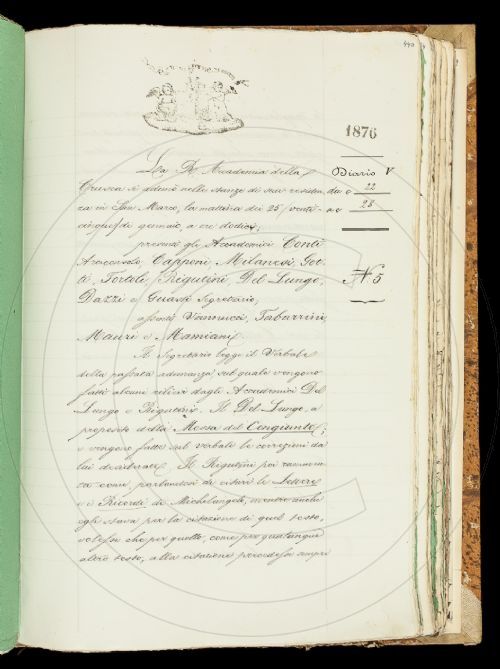 440
1876
La R. Accademia della
Crusca si adunò nelle stanze di sua residen-
za in San Marco, la mattina dei 25 (venti-
cinque) di gennaio, a ore dodici;
presenti gli Accademici Conti
Arciconsolo, Capponi, Milanesi, Got-
ti, Tortoli, Rigutini, Del Lungo,
Dazzi e Guasti Segretario;
assenti Vannucci, Tabarrini,
Mauri e Mamiani.
Il Segretario legge il Verbale
della passata adunanza sul quale vengono
fatti alcuni rilievi dagli Accademici Del
Lungo e Rigutini. Il Del Lungo, a
proposito della Mossa del Congiunto;
e vengono fatte sul verbale le correzioni da
lui desiderate. Il Rigutini poi rammen-
ta come, parlandosi di citare le Lettere
e i Ricordi di Michelangelo, mentre anche
egli stava per la citazione di quel testo,
volesse che per quello, come per qualunque
altro testo, alla citazione precedesse sempre
Diario V
da c 22
a c 28
N. 5